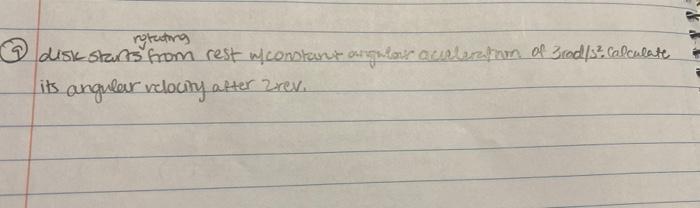 9 disk starts rotating from rest w/constant angular acceleration of 3rad/s². Calculate
its angular velocity after 2rev.